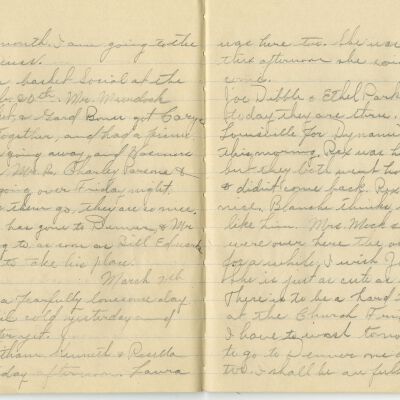 month. I am going to the
a basket Social at the
20th. Mr. Murdock
as Gard Bower got Carye
together, and had a prime
going away, and Florence
Mr. & Mrs. Charley Parsons &
going over Friday night.
them go, they are so nice.
has gone to Denver, & Mr
to as soon as Bill Edwards
to take his place.
March 7th
a fearfully lonesome day
cold yesterday and
Kenneth & Rosella
day afternoon. Laura
was here too. She was
this afternoon she
come.
Joe Dibble & Ethel Park
today they are thru.
Louisville for Dynamite
this morning. Rex was h
but they both went h
& didn't come back. Rex
nice. Blanche thinks
like him. Mrs. Mock &
were over here the o
for a while, I wish
she is just as cute as
There is to be a hard t
at the Church Fri
I have to wash tomo
to go to Denver one
two. I shall be aw